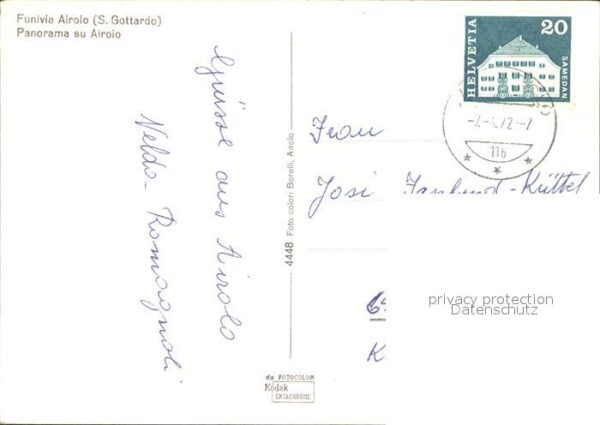 Funivia Airolo (S. Gottardo)
Panorama su Airolo
Grüsse aus Airolo
Nelda Romagnoli
4448 Foto colori Borelli, Airolo
da FOTOCOLOR
Kodak
EKTACHROME
HELVETIA
20
SAMEDAN
72-7
11b
Frau
Josi
privacy protection
Datenschutz
K